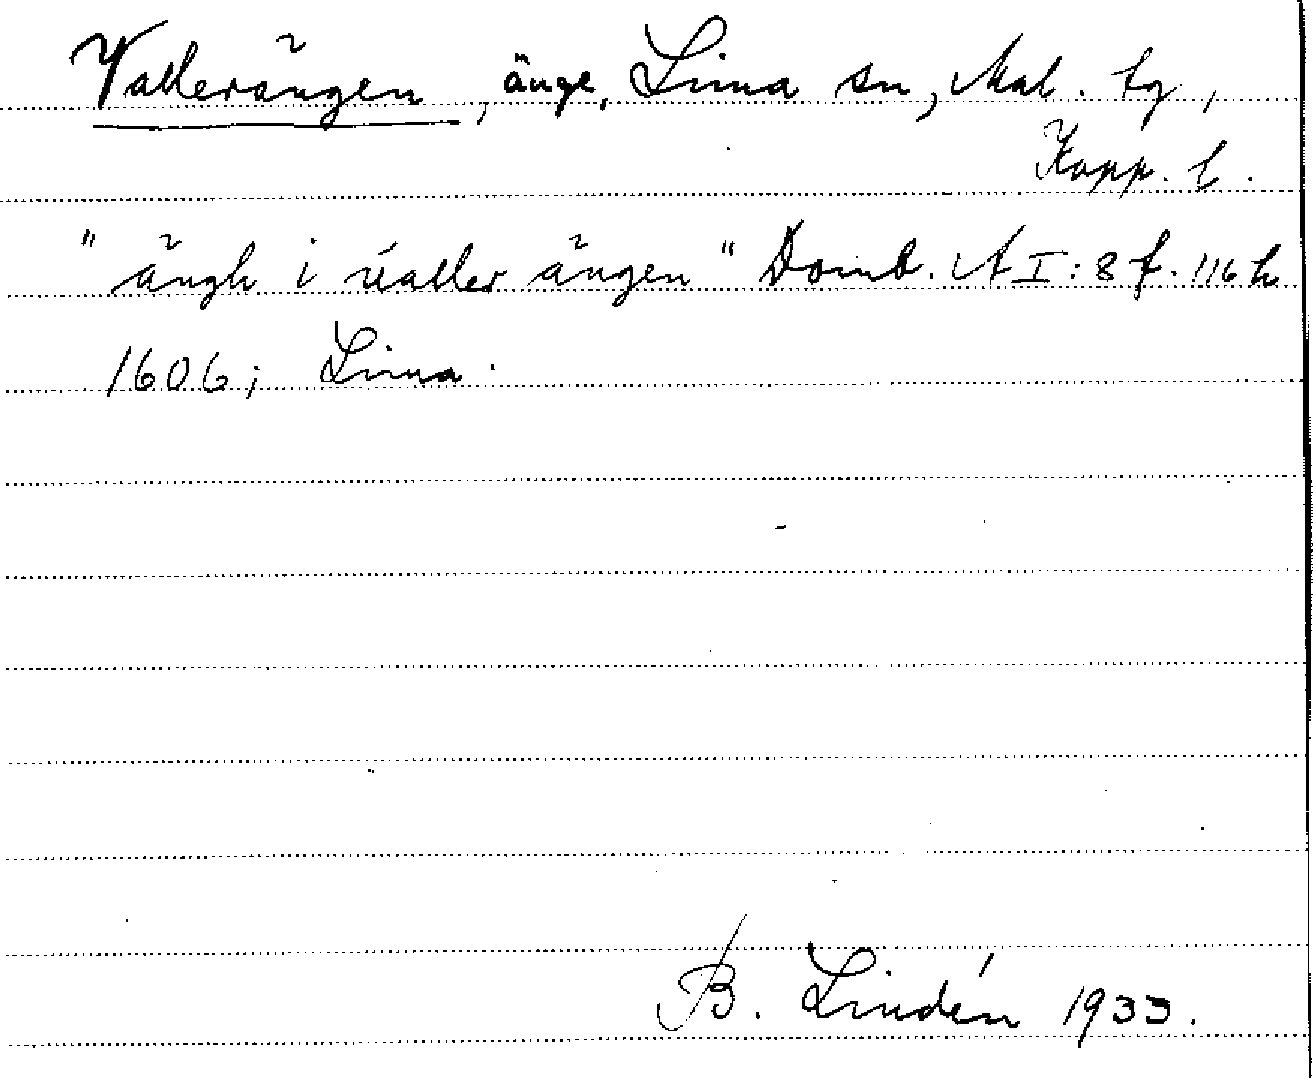 Vallerängen, änge, Lima sn, Mal. tg,
Kopp. l.
"ängh i ualler ängen" Domb. A I:8 f. 116 h
1606; Lima.
B. Lindén 1933.